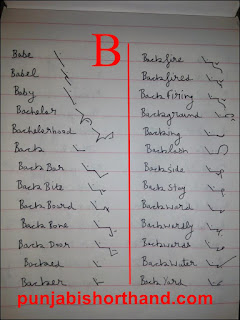 B
Babe
Babel
Baby
Bachelor
Bachelorhood
Back
Back Bar
Back Bite
Back Board
Back Bone
Back Door
Backed
Backer
Backfire
Backfired
Back Firing
Background
Backing
Backlash
Backside
Back Stay
Backward
Backwardly
Backwards
Backwater
Back Yard
punjabishorthand.com